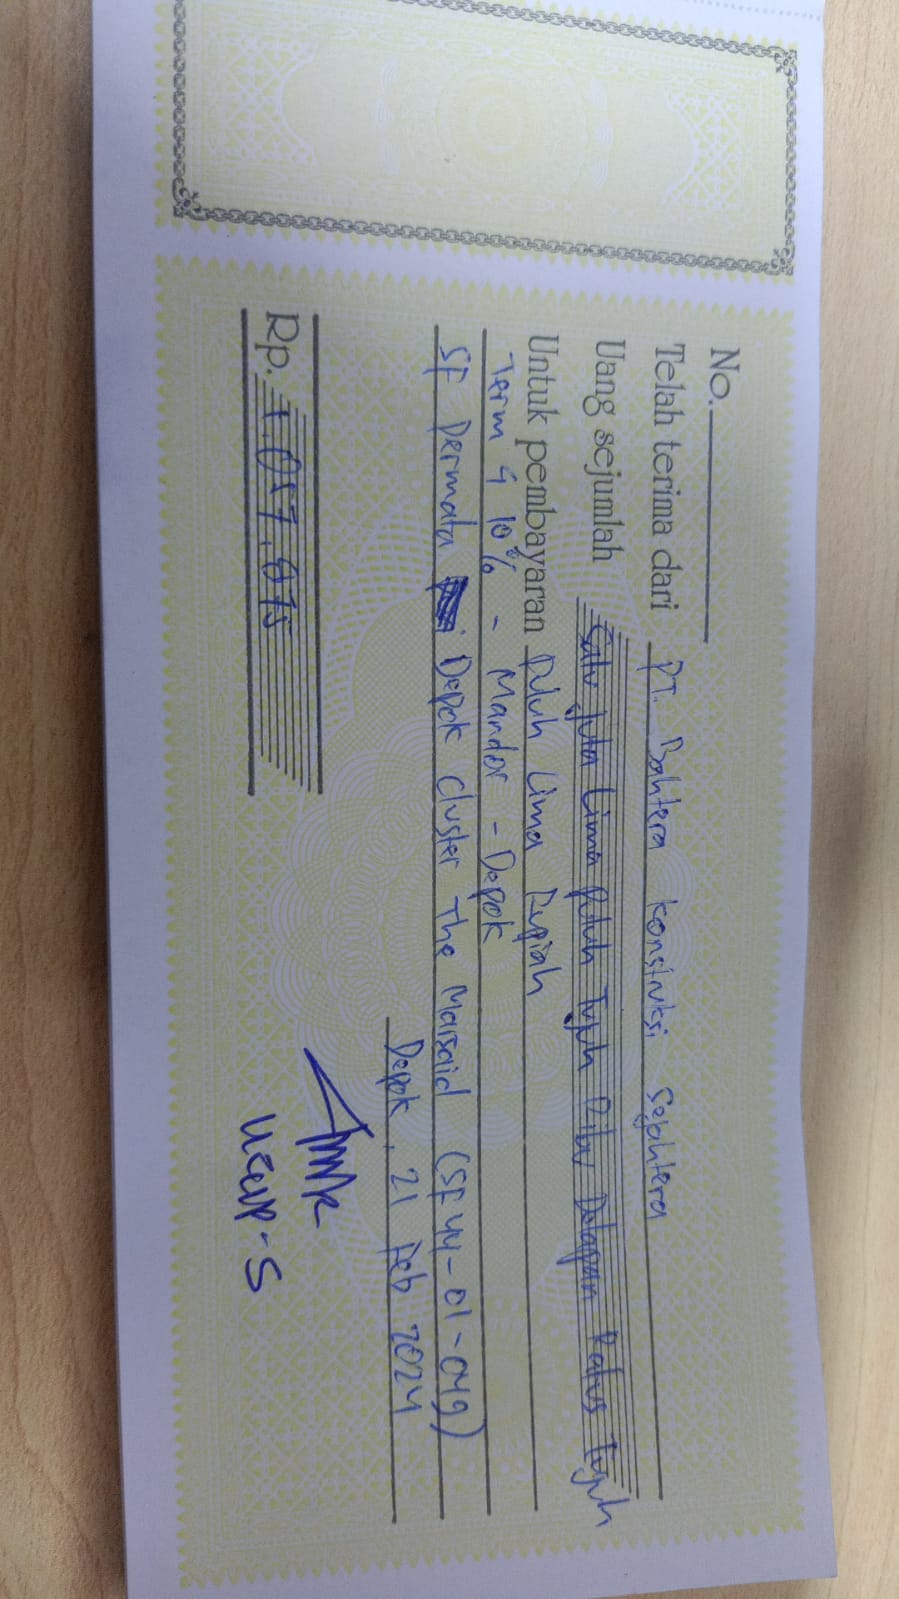 No.
Telah terima dari PT. Bahtera konstruksi Sejahtera
Uang sejumlah Satu juta Lima puluh Tujuh Ribu Delapan Ratus Tujuh
Untuk pembayaran Puluh Lima Rupiah
Term 4 10% - Mandor - Depok
SF Permata Depok Cluster The Marsaid (SF 44-01-049)
Depok, 21 Feb 2024
Rp. 1.057.875